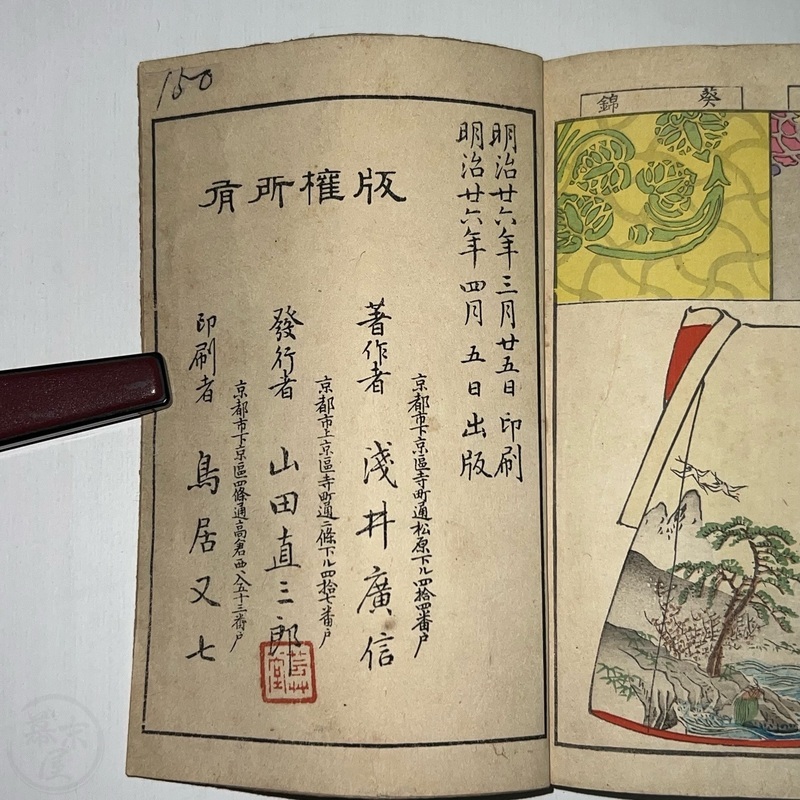 150
明治廿六年三月廿五日印刷
明治廿六年四月五日出版
版權所有
京都市下京區寺町通松原下ル四拾四番戸
著作者 淺井廣信
京都市上京區寺町通二條下ル四拾七番戸
發行者 山田直三郎
芸艸堂
京都市下京區四條通高倉西入五十三番戸
印刷者 鳥居又七
葵錦